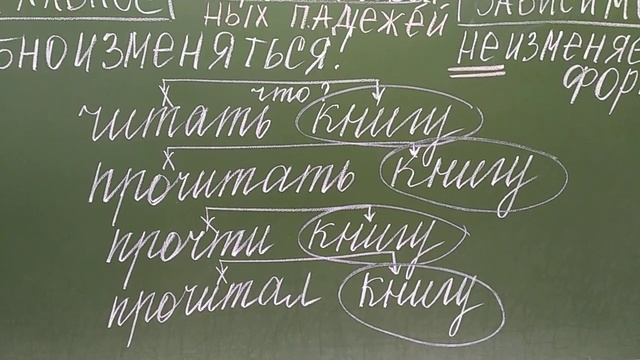 ных падежей
бноизменяться! не изменяе
что?
читать книгу
прочитать книгу
прочти книгу
прочитал книгу